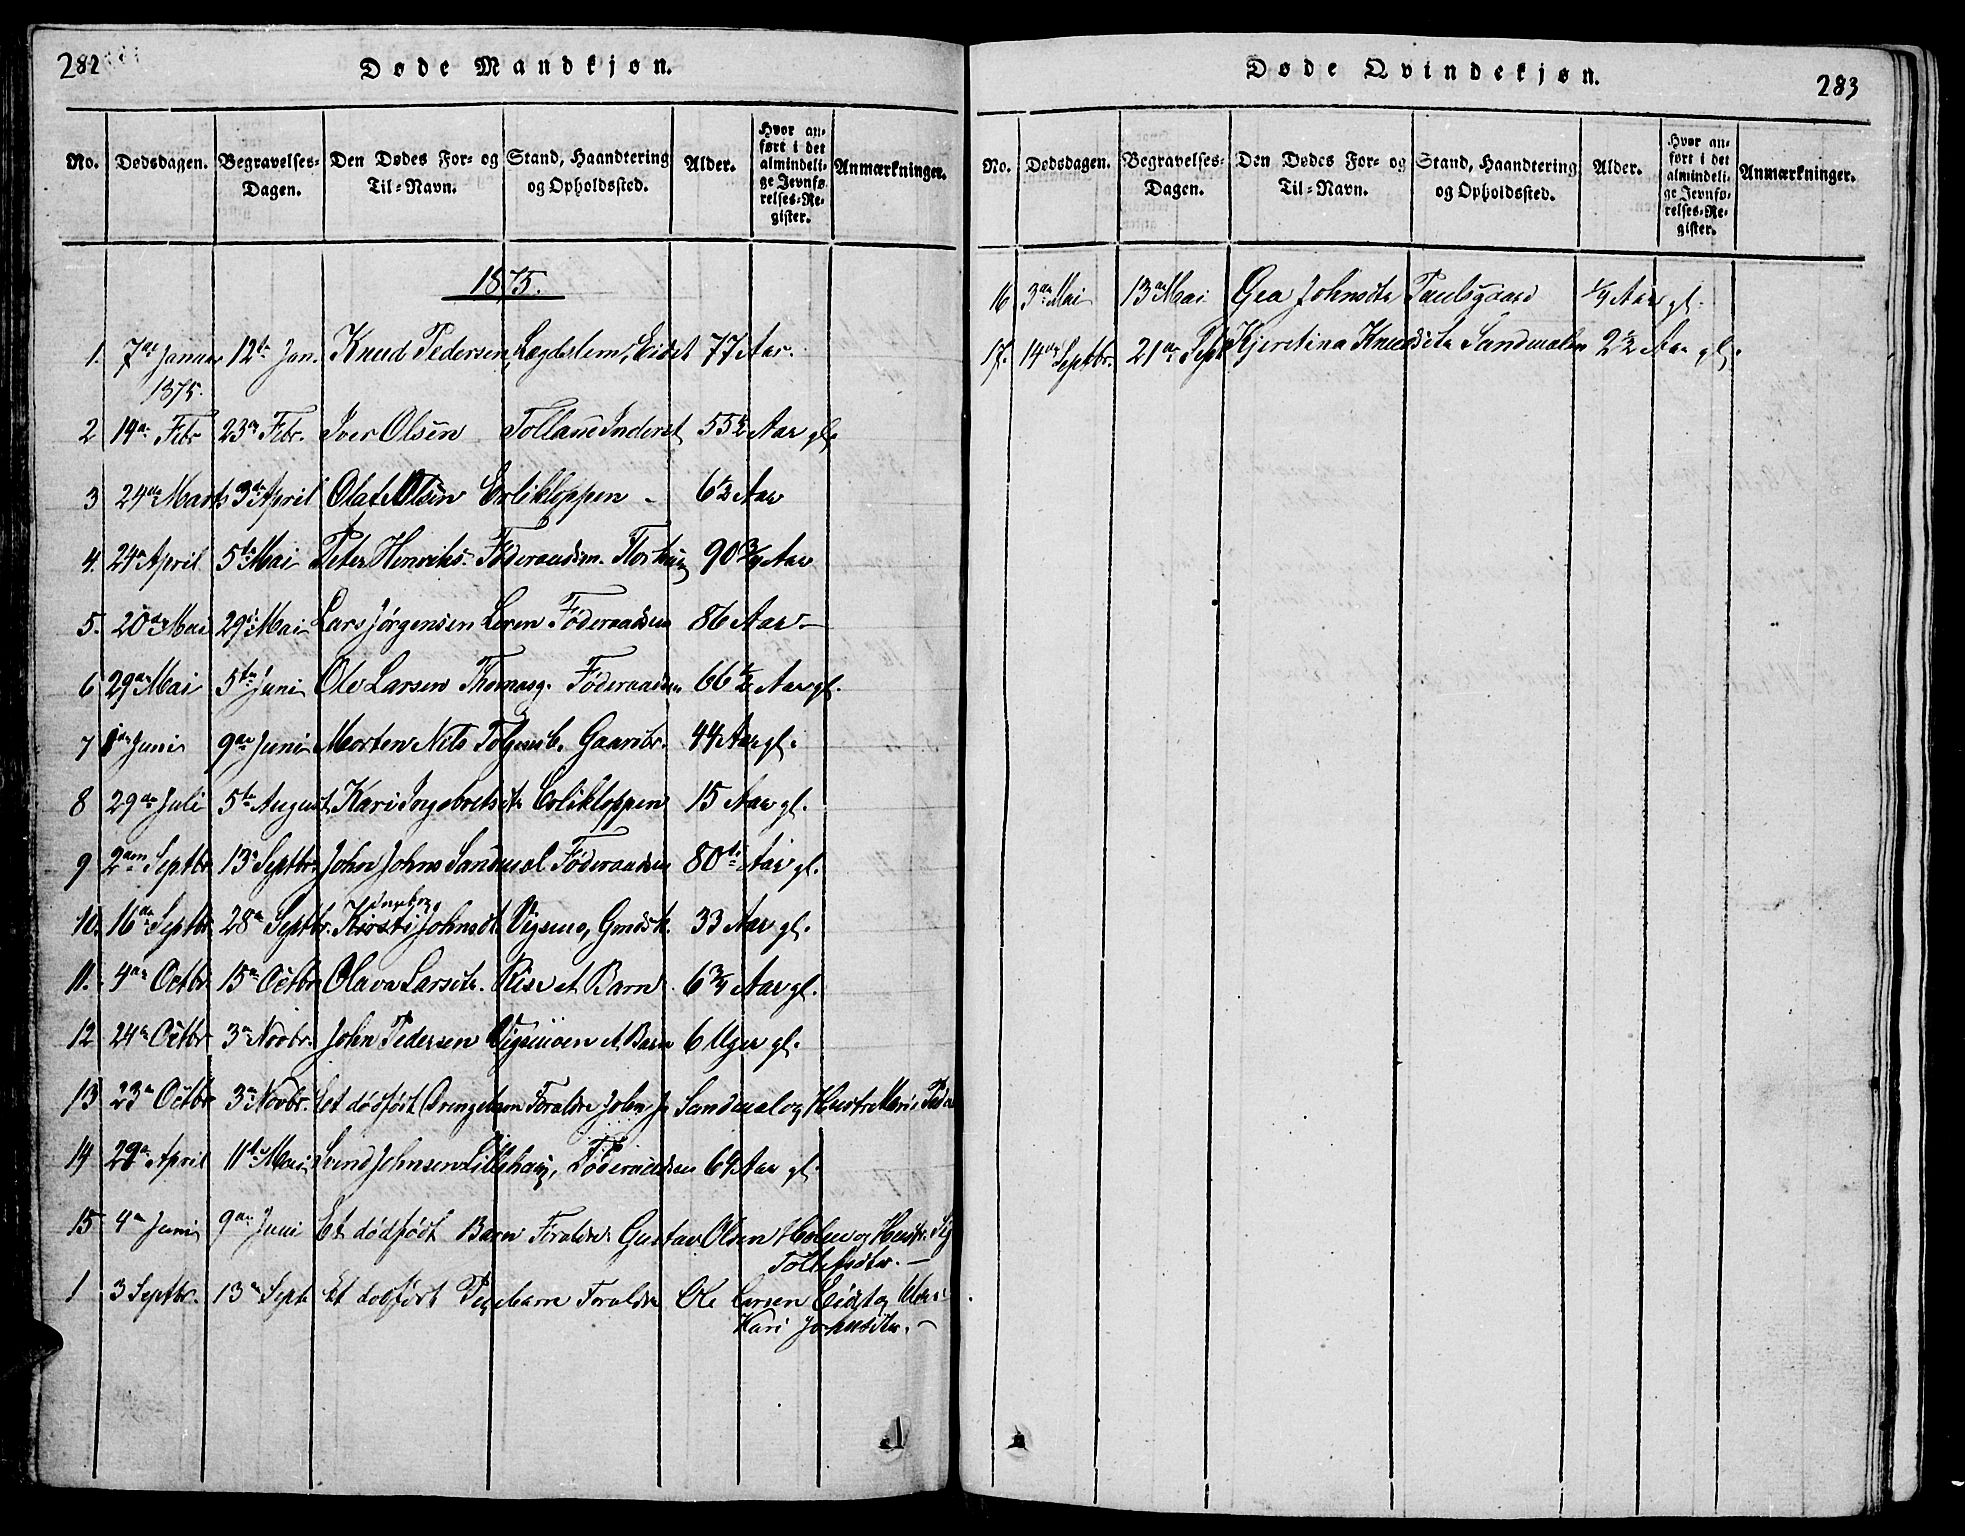 282
Døde Mandkjøn.
No. Dødsdagen. Begravelses-Dagen. Den Dødes For- og Til-Navn. Stand, Haandtering og Opholdssted. Alder. Hvor anført i det almindelige Jevnførelses-Register. Anmærkninger.
1875.
1. 7de Januar 1875. 12te Jan. Knud Pedersen Lægdslem, Eidet 77 Aar.
2 19de Febr 23de Febr. Iver Olsen Tollane Inderset 55½ Aar gl.
3 24de Marts 3de April Olaf Olsen Erlikloppen - 6½ Aar
4. 24de April 5te Mai Peter Henriks. Føderaadsm. 90¾ Aar
5. 20de Mai 29de Mai Lars Jørgensen Føderaadsm 86 Aar -
6 29de Mai 5te Juni Ole Larsen Thomasg. Føderaadsm 66½ Aar gl.
7 1ste Juni 9de Juni Morten Nils Gaardbr. 44 Aar gl.
8 29de Juli 5te August Kari Ingebretsdt Erlikloppen 15 Aar gl.
9 2den Septbr 13de Septbr. John Johns Sandmæl Føderaadsm 80ti Aar gl.
Ingeborg
10. 16de Septbr 28de Septbr. Kirsti Johnsdt. Vigsmo, Gmdsk. 33 Aar gl.
11. 4de Octbr 15de Octbr Olava Larsdt. Rise et Barn 6¾ Aar gl.
12 24de Octbr 3de Novbr. John Pedersen Vigsmoen et Barn 6 Uger gl.
13 23de Octbr 3de Novbr. Et dødfødt Drengebarn Foræld­re John J. Sandmæl og Hustru Mari
14 29de April 11te Mai Svend Johnsen Lillehaug, Føderaadsm 64 Aar gl.
15 4de Juni 9de Juni Et dødfødt Barn Forældre Gustav Olsen Holm og Hustr.
Tollefsdtr. -
1 3 Septbr. 13de Sept. Et dødfødt Pigebarn Forældre Ole Larsen Eidet og
Kari Johnsdtr. -
283
Døde Qvindekjøn.
No. Dødsdagen. Begravelses-Dagen. Den Dødes For- og Til-Navn. Stand, Haandtering og Opholdssted. Alder. Hvor anført i det almindelige Jevnførelses-Register. Anmærkninger.
16 3de Mai 13de Mai Gea Johnsdtr Paulsgaard ¼ Aar gl.
17. 14de Septbr. 21de Sept Kjerstina Knudsdtr Sandmælen 2½ Aar gl.